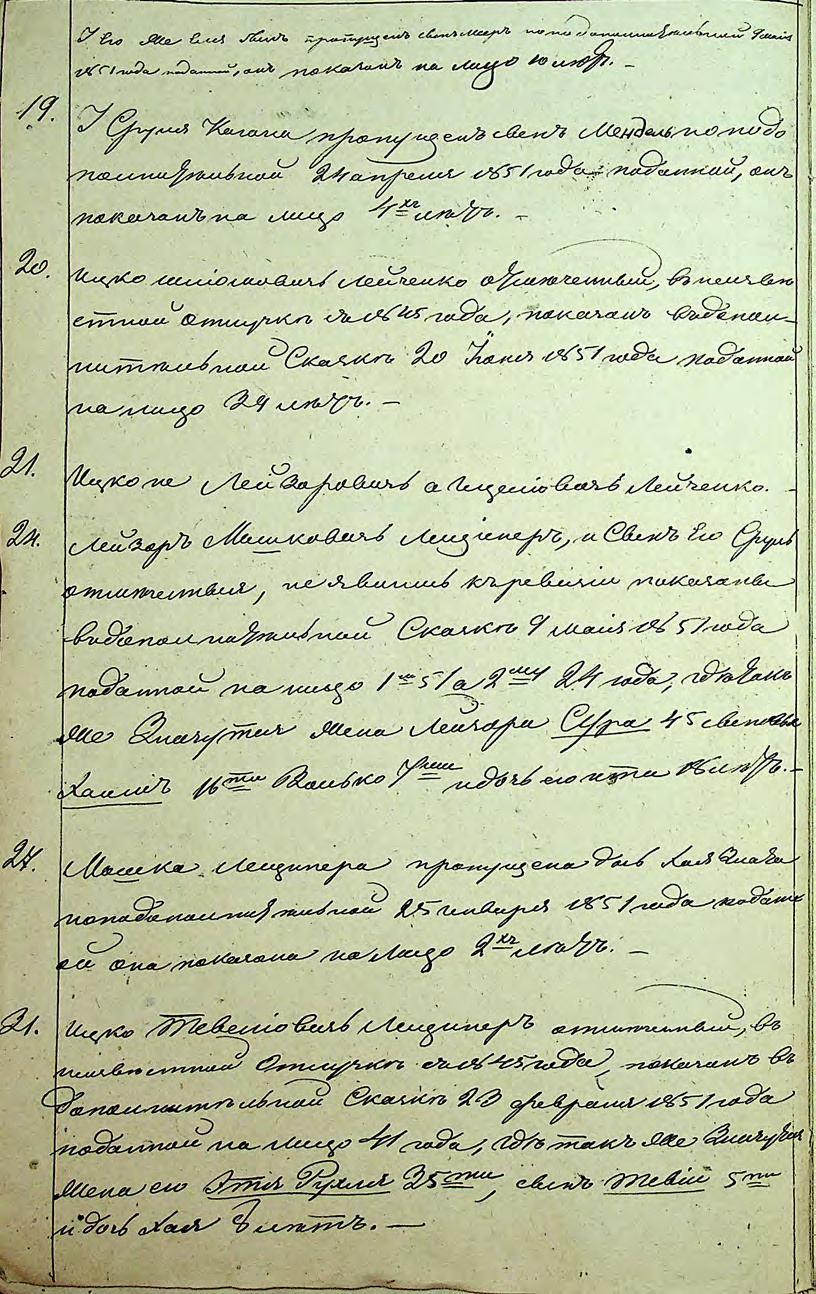 У его же Еля сынъ пропущенъ сынъ Мееръ по дополнительной 9 маія
1851 года поданной, онъ показанъ на лицо 10 лѣтъ. –
19. У Сруля Кагана пропущенъ сынъ Мендель по допо
лнительной 24 апреля 1851 года поданной, онъ
показанъ на лицо 4хъ лѣтъ. –
20. Ицко Шліомовичъ Лейченко отлученный, въ неизвѣ
стной отлучкѣ съ 1845 года, показанъ в допол-
нительной Сказкѣ 20 Іюня 1851 года поданной
на лицо 39 лѣтъ. –
21. Ицко не Лейзоровичъ а Ицеліовичъ Лейченко. –
24. Лейзоръ Машковичъ Лещинеръ, и Сынъ его Сруль
отлученныя, не явились къ ревизіи показаны
в дополнительной Сказкѣ 9 маія 1851 года
поданной на лицо 1й 51 а 2й 24 года, гдѣ такъ
же Значутся жена Лейзора Сура 45 сыновья
Хаимъ 16ти Волько 7ми и дочь его Ити 18 лѣтъ. –
27. Машка Лещинера пропущена дочь Хая Злата
по дополнительной 25 января 1851 года поданн
ой она показана на лицо 2хъ лѣтъ. –
31. Ицко Тевеліовичъ Лещинеръ отлученный, въ
неизвѣстной Отлучкѣ съ 1845 года, показанъ въ
дополнительной Сказкѣ 23 февраля 1851 года
поданной на лицо 41 года, гдѣ такъ же Значутся
жена его Этля Рухля 35ти, сынъ Тевій 5ти
и дочь Хая 8 лѣтъ. –